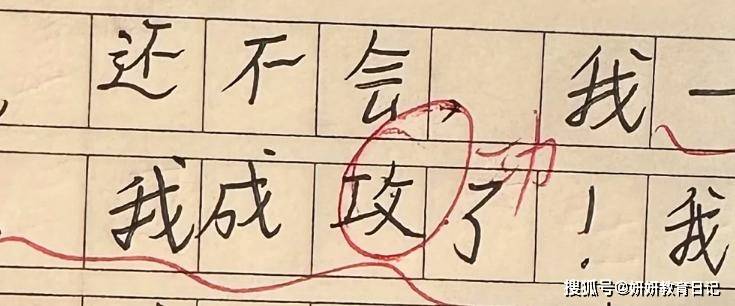 ，还不会，我一
功
我成攻了！我
搜狐号@妍妍教育日记